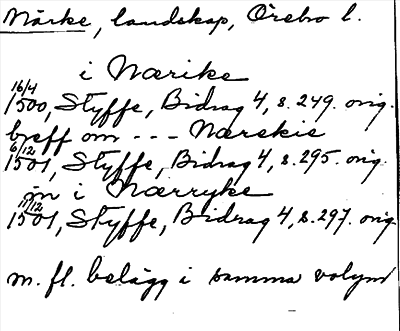 Närke, landskap, Örebro l.
i Nærike
16/4 1500, Styffe, Bidrag 4, s. 249. orig.
breff om - - - Nærekis
6/12 1501, Styffe, Bidrag 4, s. 295. orig.
in i Nærryke
11/12 1501, Styffe, Bidrag 4, s. 297. orig
m. fl. belägg i samma volym